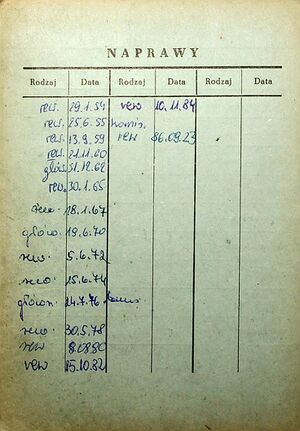 NAPRAWY
Rodzaj Data Rodzaj Data Rodzaj Data
rew. 29.1.54 rew 10.11.84
rew. 25.6.55 komin.
rew. 13.9.59 rew 86.09.23
rew. 21.11.60
głów. 31.12.62
rew. 30.1.65
rew. 18.1.67
główn. 19.6.70
rew. 5.6.72
rew. 15.6.74
główn. 24.7.76
rew. 30.5.78
rew 8.08.80
rew 15.10.82